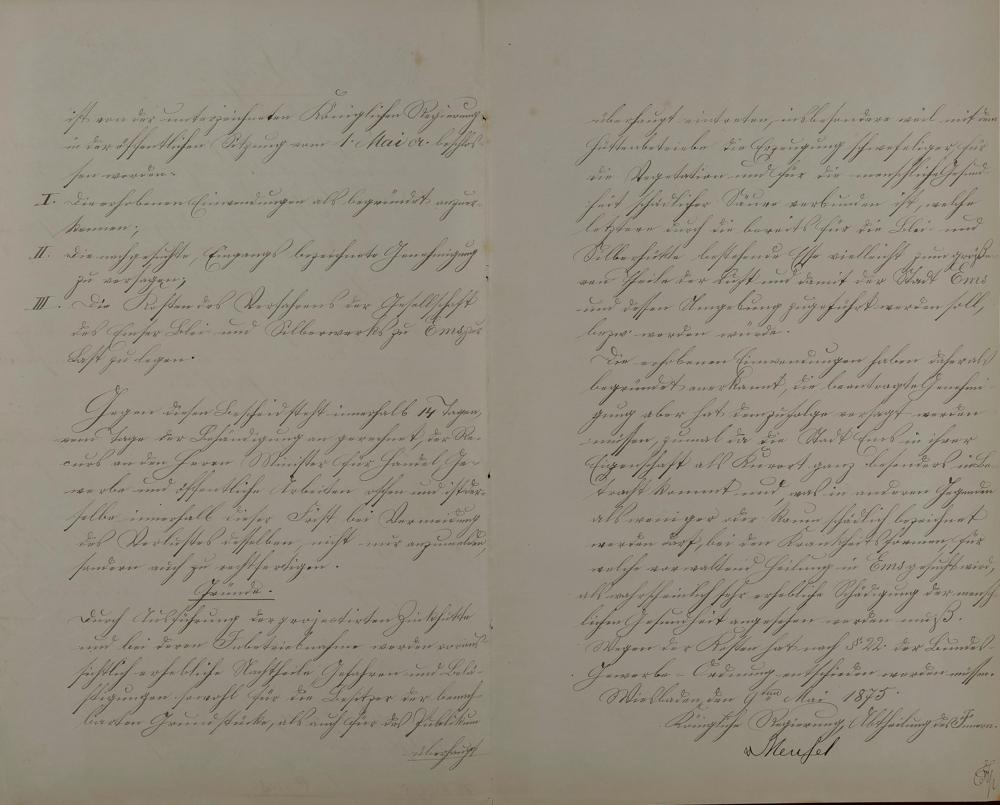 ist von der unterzeichneten Königlichen Regierung
in der öffentlichen Sitzung vom 1. Mai cr. beschlos-
sen worden.
I. Die erhobenen Einwendungen als begründet anzuer-
kennen;
II. die nachgesuchte, Eingangs bezeichnete Genehmigung
zu versagen;
III. Die Kosten des Verfahrens der Gesellschaft
des Emser Blei- und Silberwerks zu Ems zur
Last zu legen.
Gegen diesen Bescheid steht innerhalb 14 Tagen,
vom Tage der Behändigung an gerechnet, der Re-
curs an den Herrn Minister für Handel, Ge-
werbe und öffentliche Arbeiten offen und ist der-
selbe innerhalb dieser Frist bei Vermeidung
des Verlustes desselben, nicht nur anzumelden,
sondern auch zu rechtfertigen.
Gründe.
Durch Ausführung der projectirten Zinkhütte
und bei deren Inbetriebnahme werden voraus-
sichtlich erhebliche Nachtheile Gefahren und Belä-
stigungen sowohl für die Besitzer der benach-
barten Grundstücke, als auch für das Publikum
überhaupt
überhaupt eintreten, insbesondere weil mit dem
Hüttenbetriebe die Erzeugung schwefeliger für
die Vegetation und für die menschliche Gesund-
heit schädlicher Säure verbunden ist, welche
letztere durch die bereits für die Blei- und
Silberhütte bestehende Esse vielleicht zum größe-
ren Theile der Luft und damit der Stadt Ems
und dessen Umgebung zugeführt werden soll,
bezw. werden würde.
Die erhobenen Einwendungen haben daher als
begründet anerkannt, die beantragte Genehmi-
gung aber hat demzufolge versagt werden
müssen, zumal da die Stadt Ems in ihrer
Eigenschaft als Kurort ganz besonders in Be-
tracht kommt und was in anderen Gegenden
als weniger oder kaum schädlich bezeichnet
werden darf, bei den Krankheitsformen, für
welche vorwaltend Heilung in Ems gesucht wird,
als wahrscheinlich sehr erhebliche Schädigung der mensch-
lichen Gesundheit angesehen werden muß.
Wegen der Kosten hat nach § 22. der Bundes-
Gewerbe-Ordnung entschieden werden müssen.
Wiesbaden, den 9ten Mai 1875.
Königliche Regierung, Abtheilung des Innern.